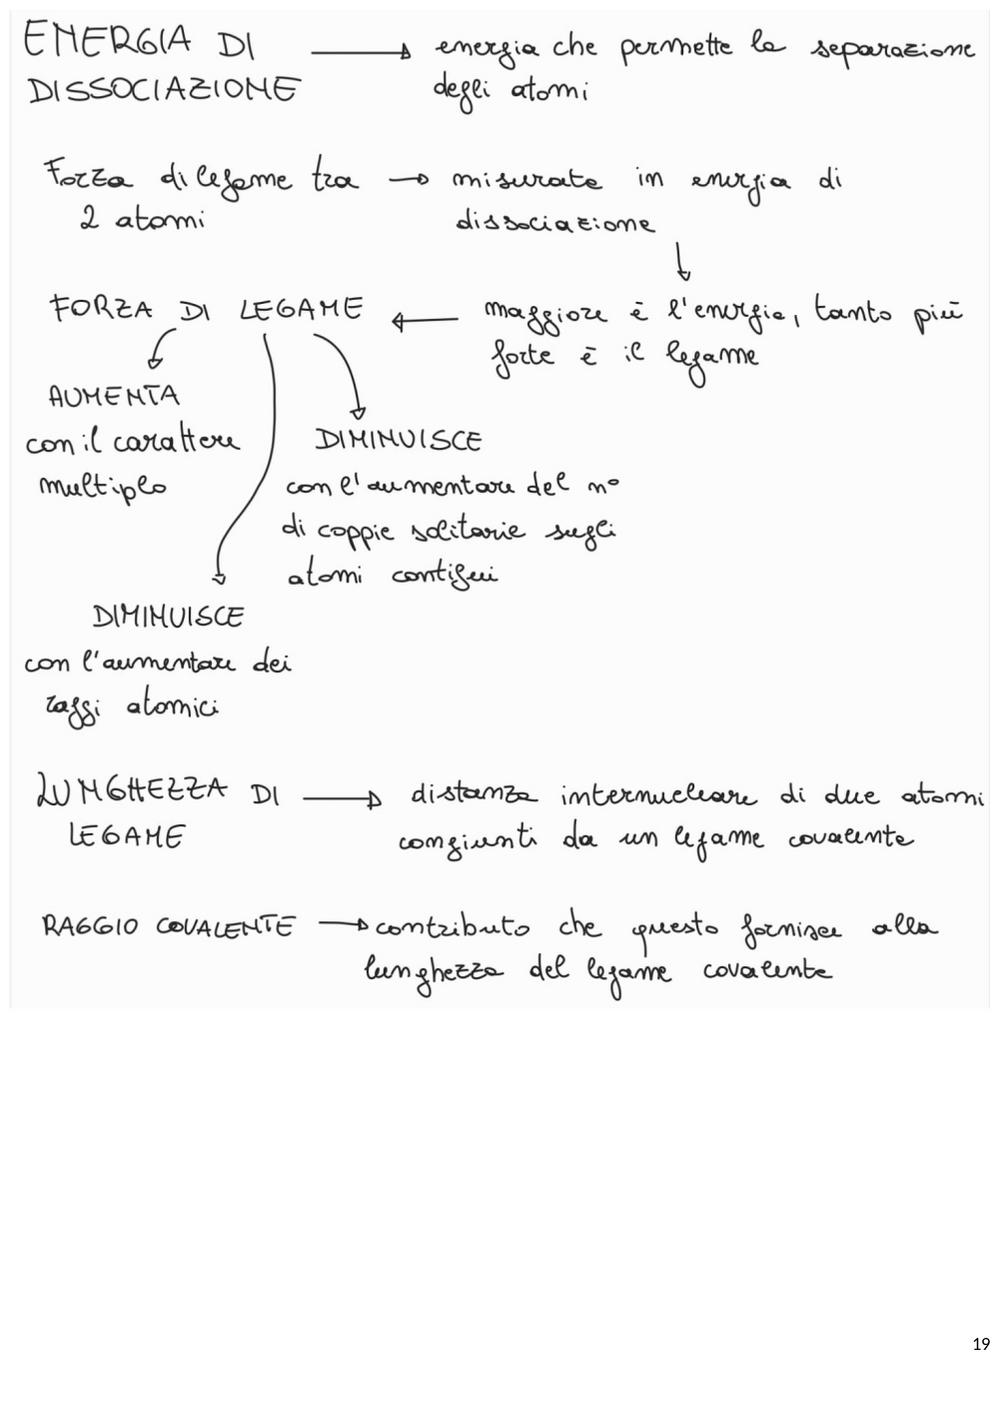 ENERGIA DI → energia che permette la separazione
DISSOCIAZIONE degli atomi
Forza di legame tra → misurata in energia di
2 atomi dissociazione
↓
FORZA DI LEGAME ← maggiore è l'energia, tanto più
forte è il legame
AUMENTA
con il carattere
multiplo
DIMINUISCE
con l'aumentare del n°
di coppie solitarie sugli
atomi contigui
DIMINUISCE
con l'aumentare dei
raggi atomici
LUNGHEZZA DI → distanza internucleare di due atomi
LEGAME congiunti da un legame covalente
RAGGIO COVALENTE → contributo che questo fornisce alla
lunghezza del legame covalente
19